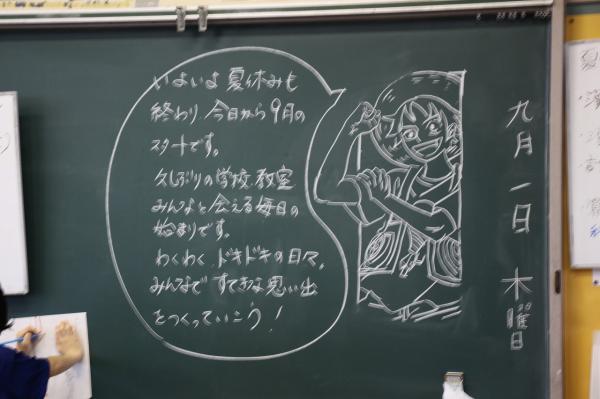 いよいよ夏休みも
終わり、今日から9月の
スタートです。
久しぶりの学校、教室
みんなと会える毎日の
始まりです。
わくわく ドキドキの日々。
みんなで すてきな思い出
をつくっていこう!
九月一日 木曜日
夏